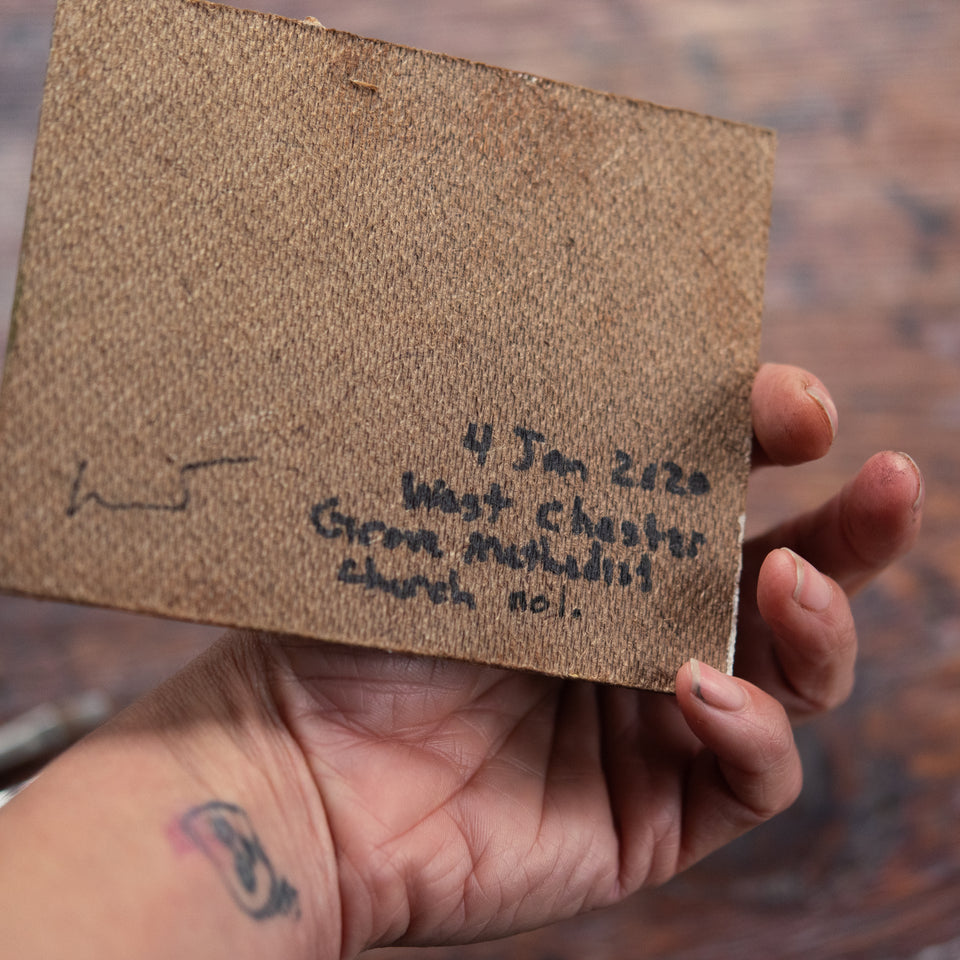 4 Jan 2020
West Chester
Grove Methodist
church no1.